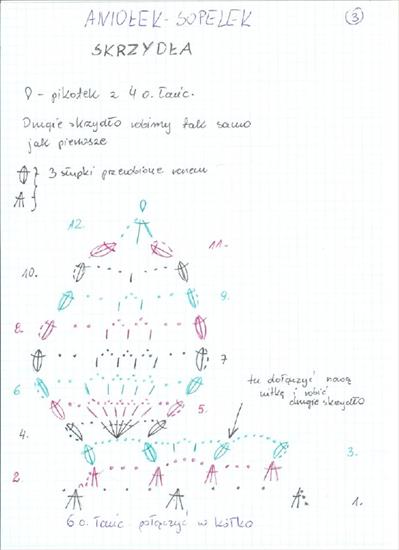 ANIOŁEK-SOPELEK
3
SKRZYDŁA
- pikotek z 4 o. łańc.
Drugie skrzydło robimy tak samo
jak pierwsze
3 słupki przerobione razem
12.
11.
10.
9.
8.
7
6
5.
4.
tu dołączyć naszą
nitkę i robić
drugie skrzydło
3.
2
1.
6 o. łańc. połączyć w kółko